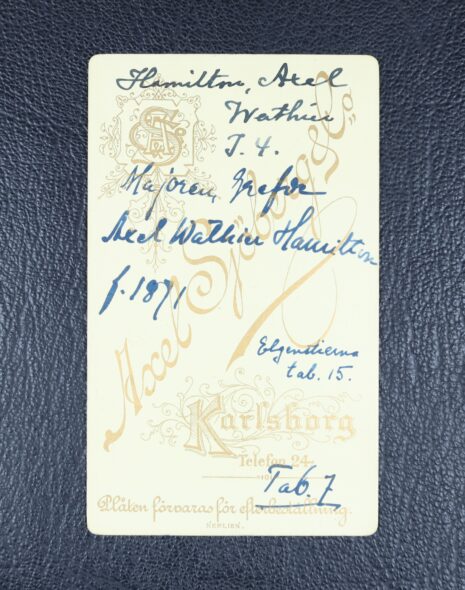 Hamilton, Axel
Wathier
I. 4.
Majoren, Grefve
Axel Wathier Hamilton
f. 1871
Axel Sjöberg & Co
Elgenstierna
tab. 15.
Karlsborg
Telefon 24
Tab. 7
Plåten förvaras för efterbeställning.